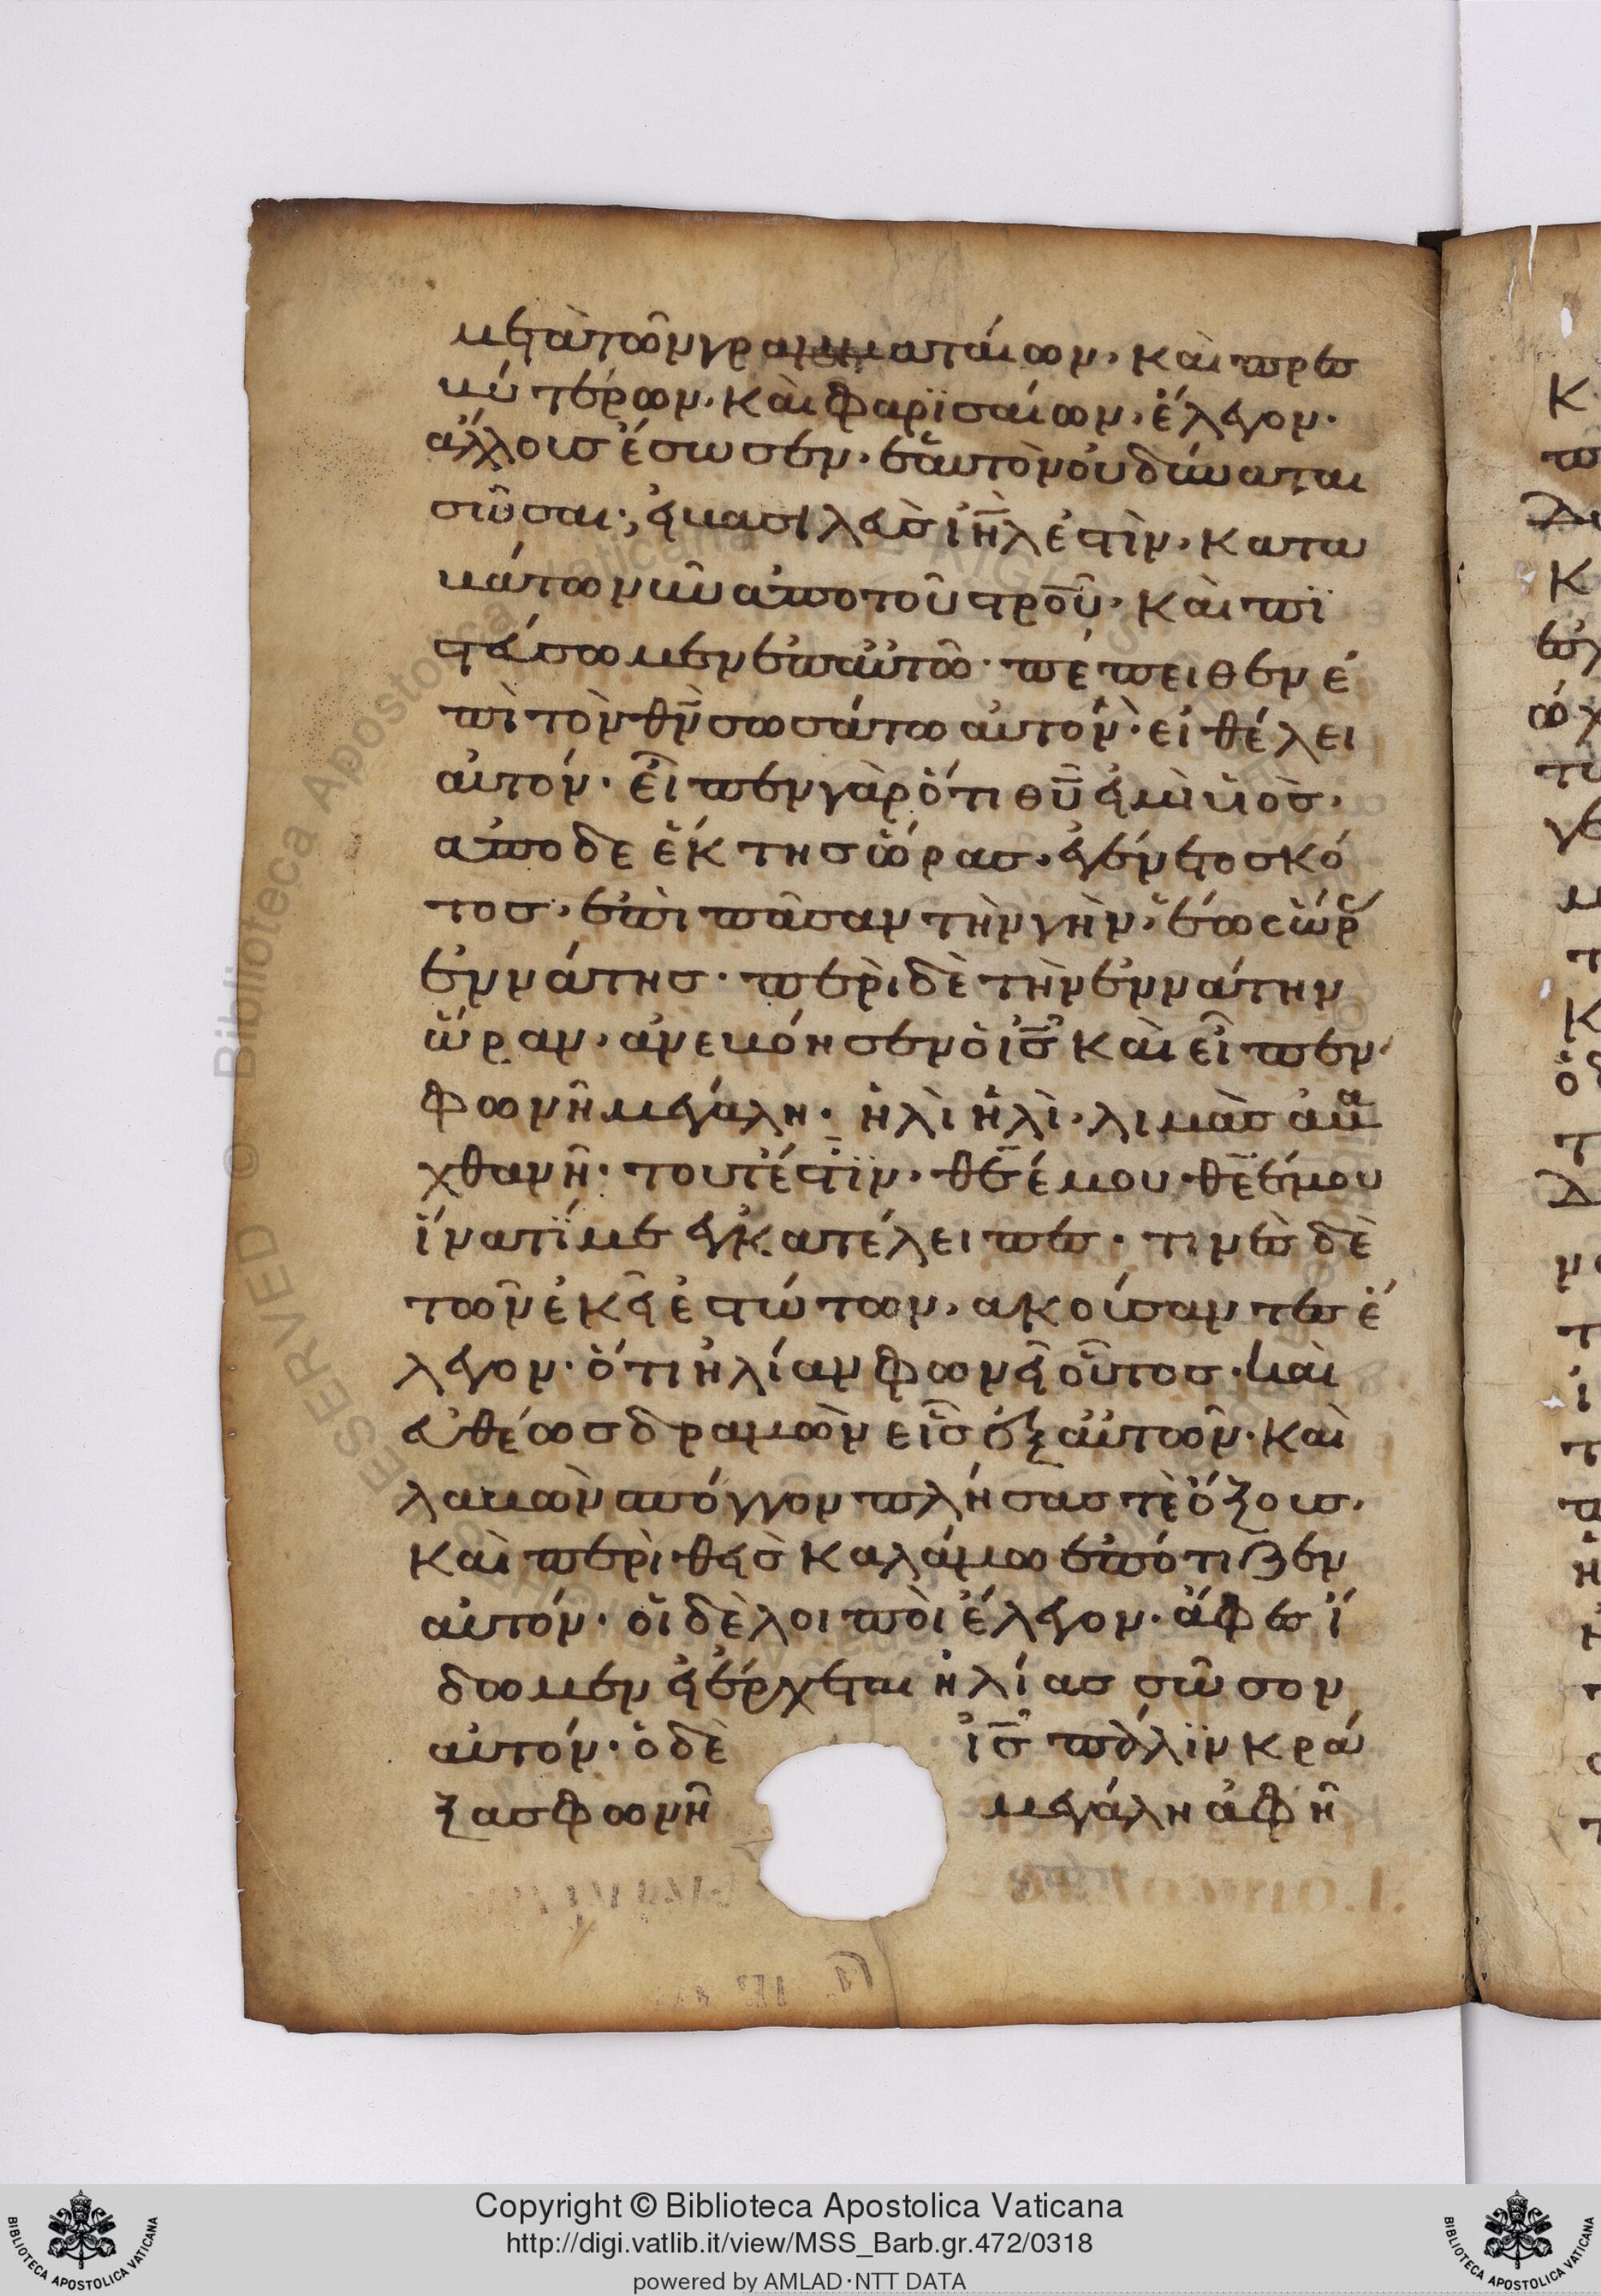 μετὰ τῶν γραμματαίων· καὶ πρεσ
βυτέρων· καὶ φαρϊσαίων· ἔλεγον·
ἄλλους ἔσωσεν· ἑαυτὸν οὐ δύναται
σῶσαι· εἰ βασιλεὺς ιη̅λ ἐστὶν· κατα
βάτω νῦν ἀπο τοῦ στρο̅υ̅· καὶ πϊ
στεύσωμεν ἐπ αὐτῶ· πέποιθεν ἐ
πὶ τὸν θν̅ σωσάτω αὐτόν· εἰ θέλει
αὐτόν· εἶπεν γὰρ ὅτι θυ̅ εἰμὶ υἱὸς·
απο δε ἕκτης ὥρας· ἐγένετο σκό
τος· ἐπὶ πᾶσαν τὴν γὴν· ἕως ὥρ
ἐννάτης· περὶ δὲ τὴν ἐννάτην
ὥραν· ἀνεβόησεν ὁ ις̅ καὶ εἶπεν
φωνῆ μεγάλη· ἠλὶ ἠλὶ· λιμὰς αβα
χθανῆ· τουτέστϊν· θε̅ έμου· θε̅ έμου
ἵνατί με εγκατέλειπες· τινὲς δὲ
τῶν ἐκεῖ ἐστώτων· ακούσαντες ἔ
λεγον· ὅτι ἠλίαν φωνεῖ οὗτος· καὶ
εὐθέως δραμὼν εἷς ἐξ αὐτῶν· καὶ
λαβὼν σπόγγον πλήσας τὲ ὄξους·
καὶ περιθεὶς καλάμω ἐπότιζεν
αὐτόν· οἱ δὲ λοιποὶ ἔλεγον· ἄφες ἴ
δωμεν εἰ ἔρχεται ἠλίας σῶσον
αὐτόν· ὁ δὲ ις̅ πάλϊν κρά
ξας φωνῆ μεγάλη ἀφῆ
Copyright © Biblioteca Apostolica Vaticana
http://digi.vatlib.it/view/MSS_Barb.gr.472/0318
powered by AMLAD·NTT DATA